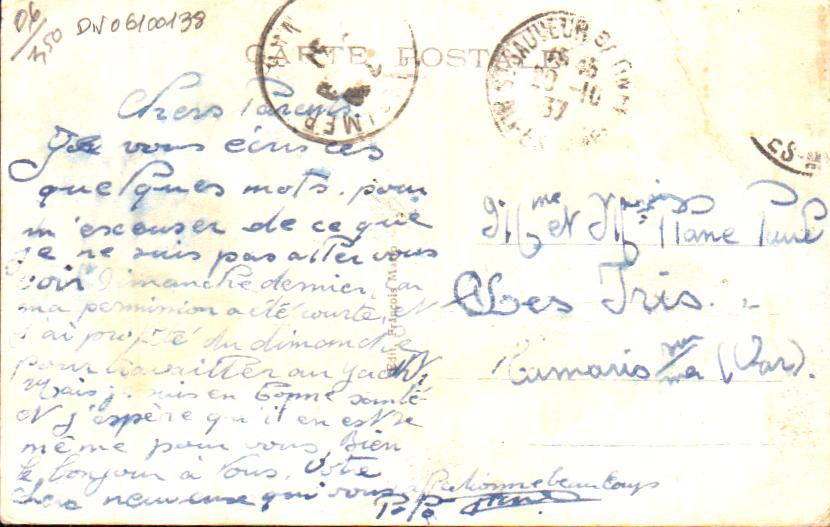 06
DN06100138
3,50
CARTE POSTALE
Chers Parents
Je vous écris ces
quelques mots. pour
m'excuser de ce que
je ne suis pas aller vous
voir Dimanche dernier, car
ma permission a été courte, et
j'ai profité du dimanche
pour travailler au yacht,
Mais je suis en bonne santé
et j'espère qu'il en est de
même pour vous, Bien
le bonjour à Vous. Votre
qui vous affectionne beaucoup
Edit. François
ST SAUVEUR
45
20-10
37
MER
Mme et Mr
Les Iris.
Tamaris sur mer (Var).